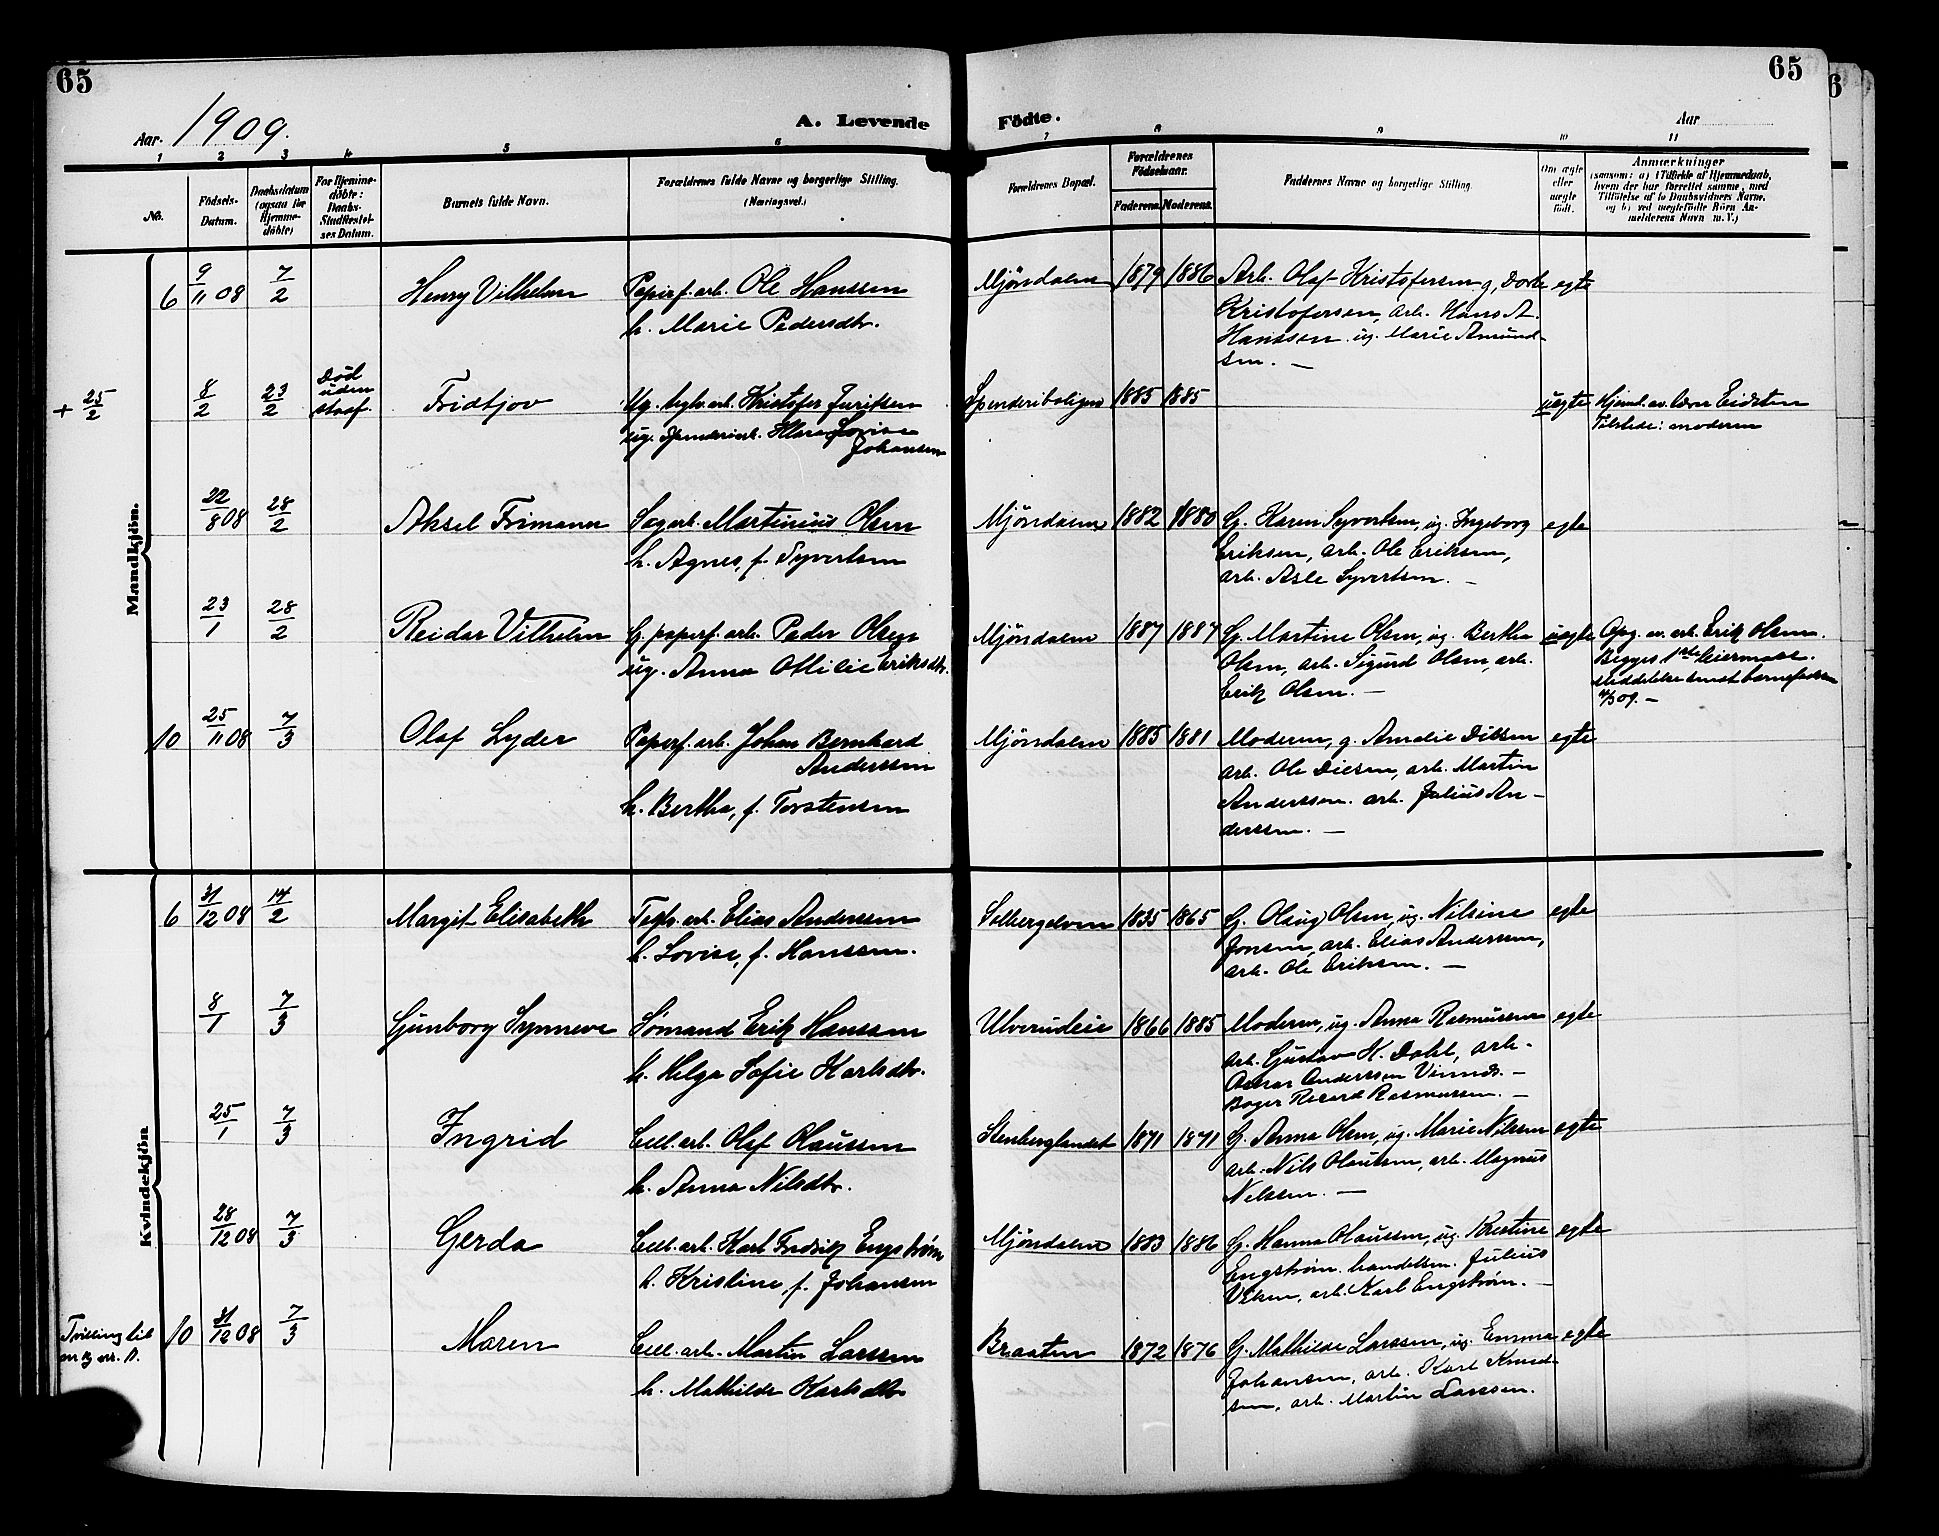 65
65
Aar. 1909.
A. Levende
Födte.
Aar
1 2 3 4 5 6 7 8 9 10 11
No.
Födsels-
Datum.
Daabsdatum
(ogsaa for
Hjemme-
döbte)
For Hjemme-
döbte:
Daabs-
Stadfestel-
ses Datum.
Barnets fulde Navn.
Forældrenes fulde Navne og borgerlige Stilling.
(Næringsvei.)
Forældrenes Bopæl.
Forældrenes
Födselsaar.
Faderens. Moderens.
Faddernes Navne og borgerlige Stilling.
Om ægte
eller
uægte
födt.
Anmærkninger
(saasom: a) i Tilfælde af Hjemmedaab,
hvem der har forrettet samme, med
Tilföielse af to Daabsvidners Navne,
og b) ved uægtefödte Börn An-
melderens Navn m. V.)
Mandkjön.
6 9/11 08 7/2 Henry Vilhelm Papirf. arb. Ole Hanssen
h. Marie Pedersdtr.
Mjöndalen 1879 1886 Arb. Olaf Kristofersen, g. Dorte
Kristofersen, arb. Hans A.
Hanssen. ug. Marie Amund-
sen. —
egte
+ 25/2 8/2 23/2 Död
uden
stadf.
Fridtjov Ug. teglv. arb. Kristofer Juriksen
ug. Spenderiarb. Klara Lovise
Johansen
Spenderiboligen 1885 1885 uegte Hjemd. av lærer Eidsten
Tilstede: moderen
22/8 08 28/2 Aksel Frimann Sagarb. Martinius Olsen
h. Agnes, f. Syvertsen
Mjöndalen 1882 1880 G. Karen Syvertsen, ug. Ingeborg
Eriksen, arb. Ole Eriksen,
arb. Asle Syvertsen. —
egte
23/1 28/2 Reidar Vilhelm G. papirf. arb. Peder Olsen
ug. Anna Ottilie Eriksdtr.
Mjöndalen 1887 1887 G. Martine Olsen, ug. Bertha
Olsen, arb. Sigurd Olsen, arb.
Erik Olsen. —
uegte Opg. av arb. Erik Olsen.
Begges 1ste leiermaal.
Meddelelse sendt barnefaderen
4/3 09. —
10 25/11 08 7/3 Olaf Lyder Papirf. arb. Johan Bernhard
Anderssen
h. Bertha, f. Torstensen
Mjöndalen 1885 1881 Moderen, g. Amalie Diesen
arb. Ole Diesen, arb. Martin
Anderssen. arb. Julius An-
derssen. —
egte
Kvindekjön
6 31/12 08 14/2 Margit Elisabeth Teglv. arb. Elias Anderssen
h. Lovise, f. Hanssen.
Solbergelven 1835 1865 G. Olaug Olsen, ug. Nilsine
Jonsen, arb. Elias Anderssen,
arb. Ole Eriksen. —
egte
8/1 7/3 Gunborg Synneve Sömand Erik Hanssen
h. Helga Sofie Karlsdtr.
Ulverudeie 1866 1885 Moderen, ug. Anna Rasmussen
arb. Gustav H. Dahl, arb.
Oskar Anderssen
Bager Rasmussen. —
egte
25/1 7/3 Ingrid Cell. arb. Olaf Olaussen
h. Anna Nilsdtr.
Stenberglandet 1871 1871 G. Anna Olsen, ug. Marie Nilssen
arb. Nils Olaussen, arb. Magnus
Nilssen. —
egte
28/12 08 7/3 Gerda Cell. arb. Karl Fredrik Engström
h. Kristine, f. Johansen
Mjöndalen 1883 1886 G. Hanna Olaussen, ug. Kristine
Engström. handelsm. Julius
Viken, arb. Karl Engström. —
egte
Tvilling til
10 31/12 08 7/3 Maren Cell. arb. Martin Larssen
h. Mathilde Karlsdtr
Braaten 1872 1876 G. Mathilde Larssen, ug. Emma
Johansen, arb. Karl Knud-
sen, arb. Martin Larssen.
egte